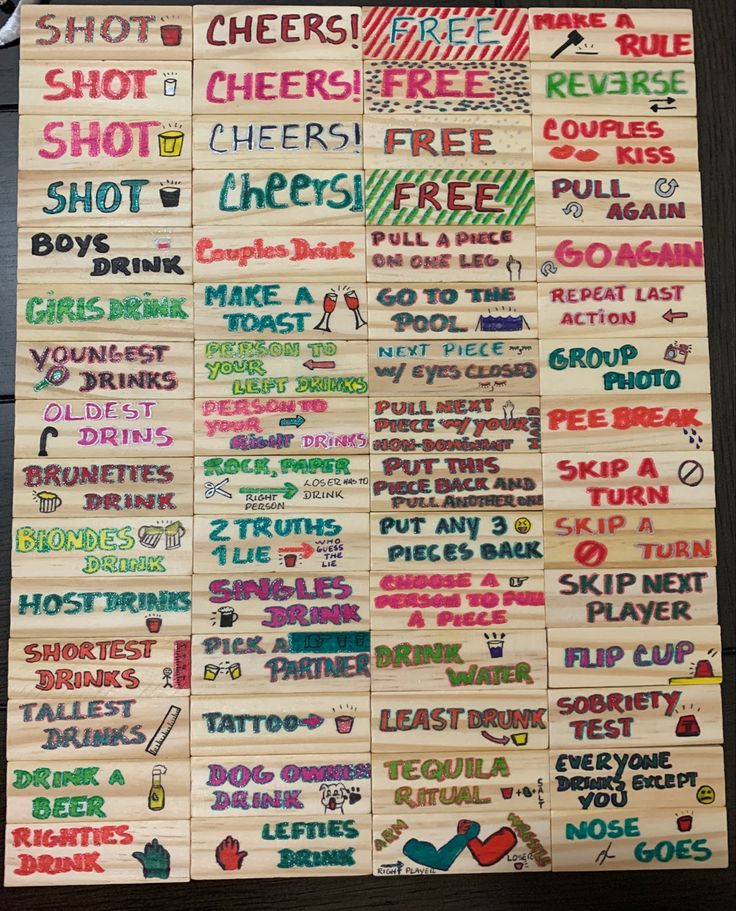 SHOT
CHEERS!
FREE
MAKE A
RULE
SHOT
CHEERS!
FREE
REVERSE
SHOT
CHEERS!
FREE
COUPLES
KISS
SHOT
Cheers!
FREE
PULL
AGAIN
BOYS
DRINK
Couples Drink
PULL A PIECE
ON ONE LEG
GO AGAIN
GIRLS DRINK
MAKE A
TOAST
GO TO THE
POOL
REPEAT LAST
ACTION
YOUNGEST
DRINKS
PERSON TO
YOUR
LEFT DRINKS
NEXT PIECE
W/ EYES CLOSED
GROUP
PHOTO
OLDEST
DRINS
PERSON TO
YOUR
RIGHT DRINKS
PULL NEXT
PIECE W/ YOUR
NON-DOMINANT
HAND
PEE BREAK
BRUNETTES
DRINK
ROCK, PAPER
RIGHT
PERSON
LOSER HAS TO
DRINK
PUT THIS
PIECE BACK AND
PULL ANOTHER ONE
SKIP A
TURN
BLONDES
DRINK
2 TRUTHS
1 LIE
WHO
GUESS
THE
LIE
PUT ANY 3
PIECES BACK
SKIP A
TURN
HOST DRINKS
SINGLES
DRINK
CHOOSE A
PERSON TO PULL
A PIECE
SKIP NEXT
PLAYER
SHORTEST
DRINKS
PICK A
PARTNER
DRINK
WATER
FLIP CUP
TALLEST
DRINKS
TATTOO
LEAST DRUNK
SOBRIETY
TEST
DRINK A
BEER
DOG OWNER
DRINK
TEQUILA
RITUAL
SALT
EVERYONE
DRINKS EXCEPT
YOU
RIGHTIES
DRINK
LEFTIES
DRINK
ARM
WRESTLE
RIGHT PLAYER
LOSER
NOSE
GOES